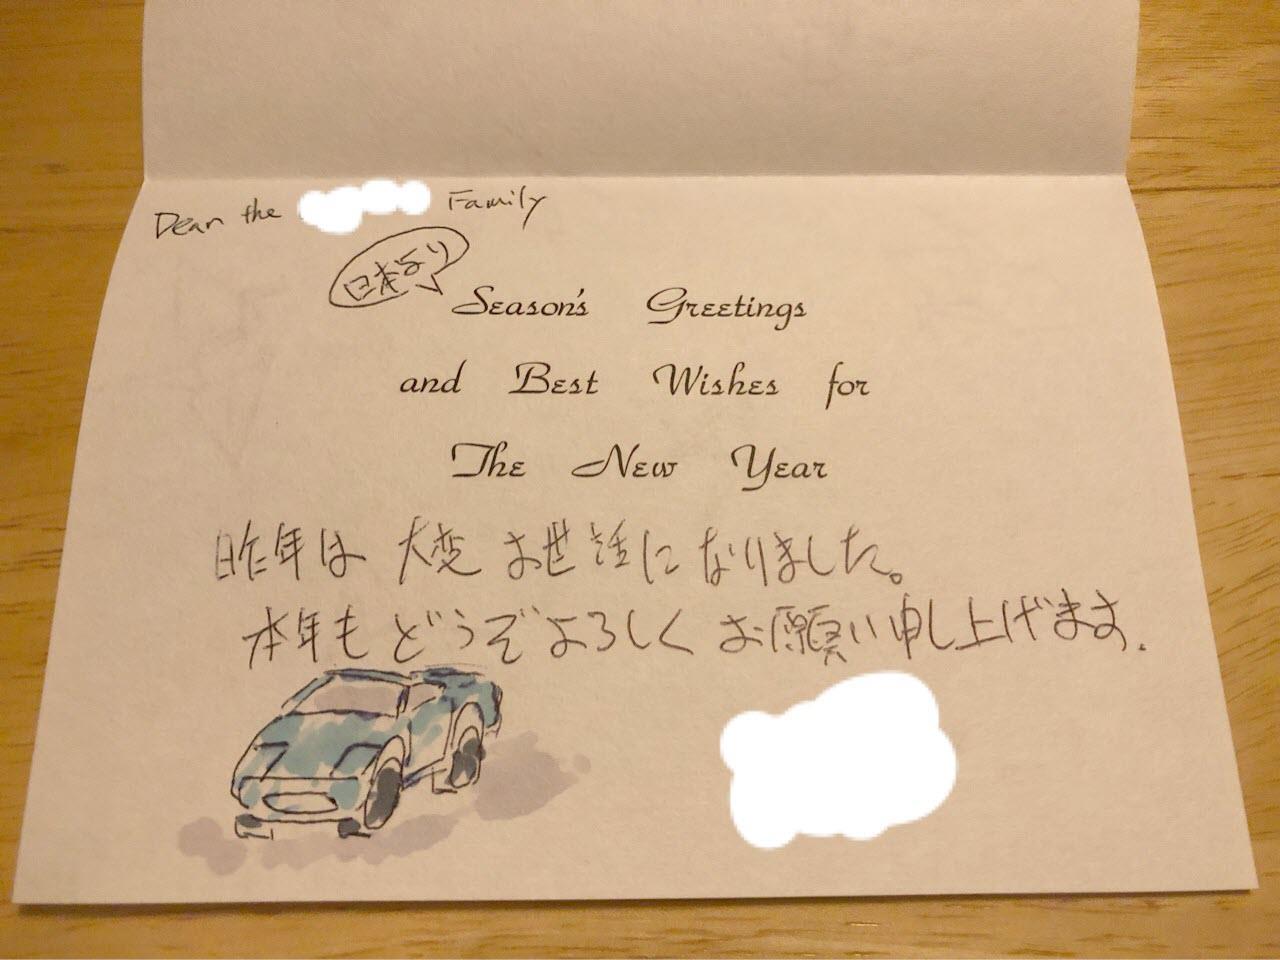 Dear the Family
日本より
Season's Greetings
and Best Wishes for
The New Year
昨年は 大変 お世話になりました。
本年も どうぞよろしく お願い申し上げます.